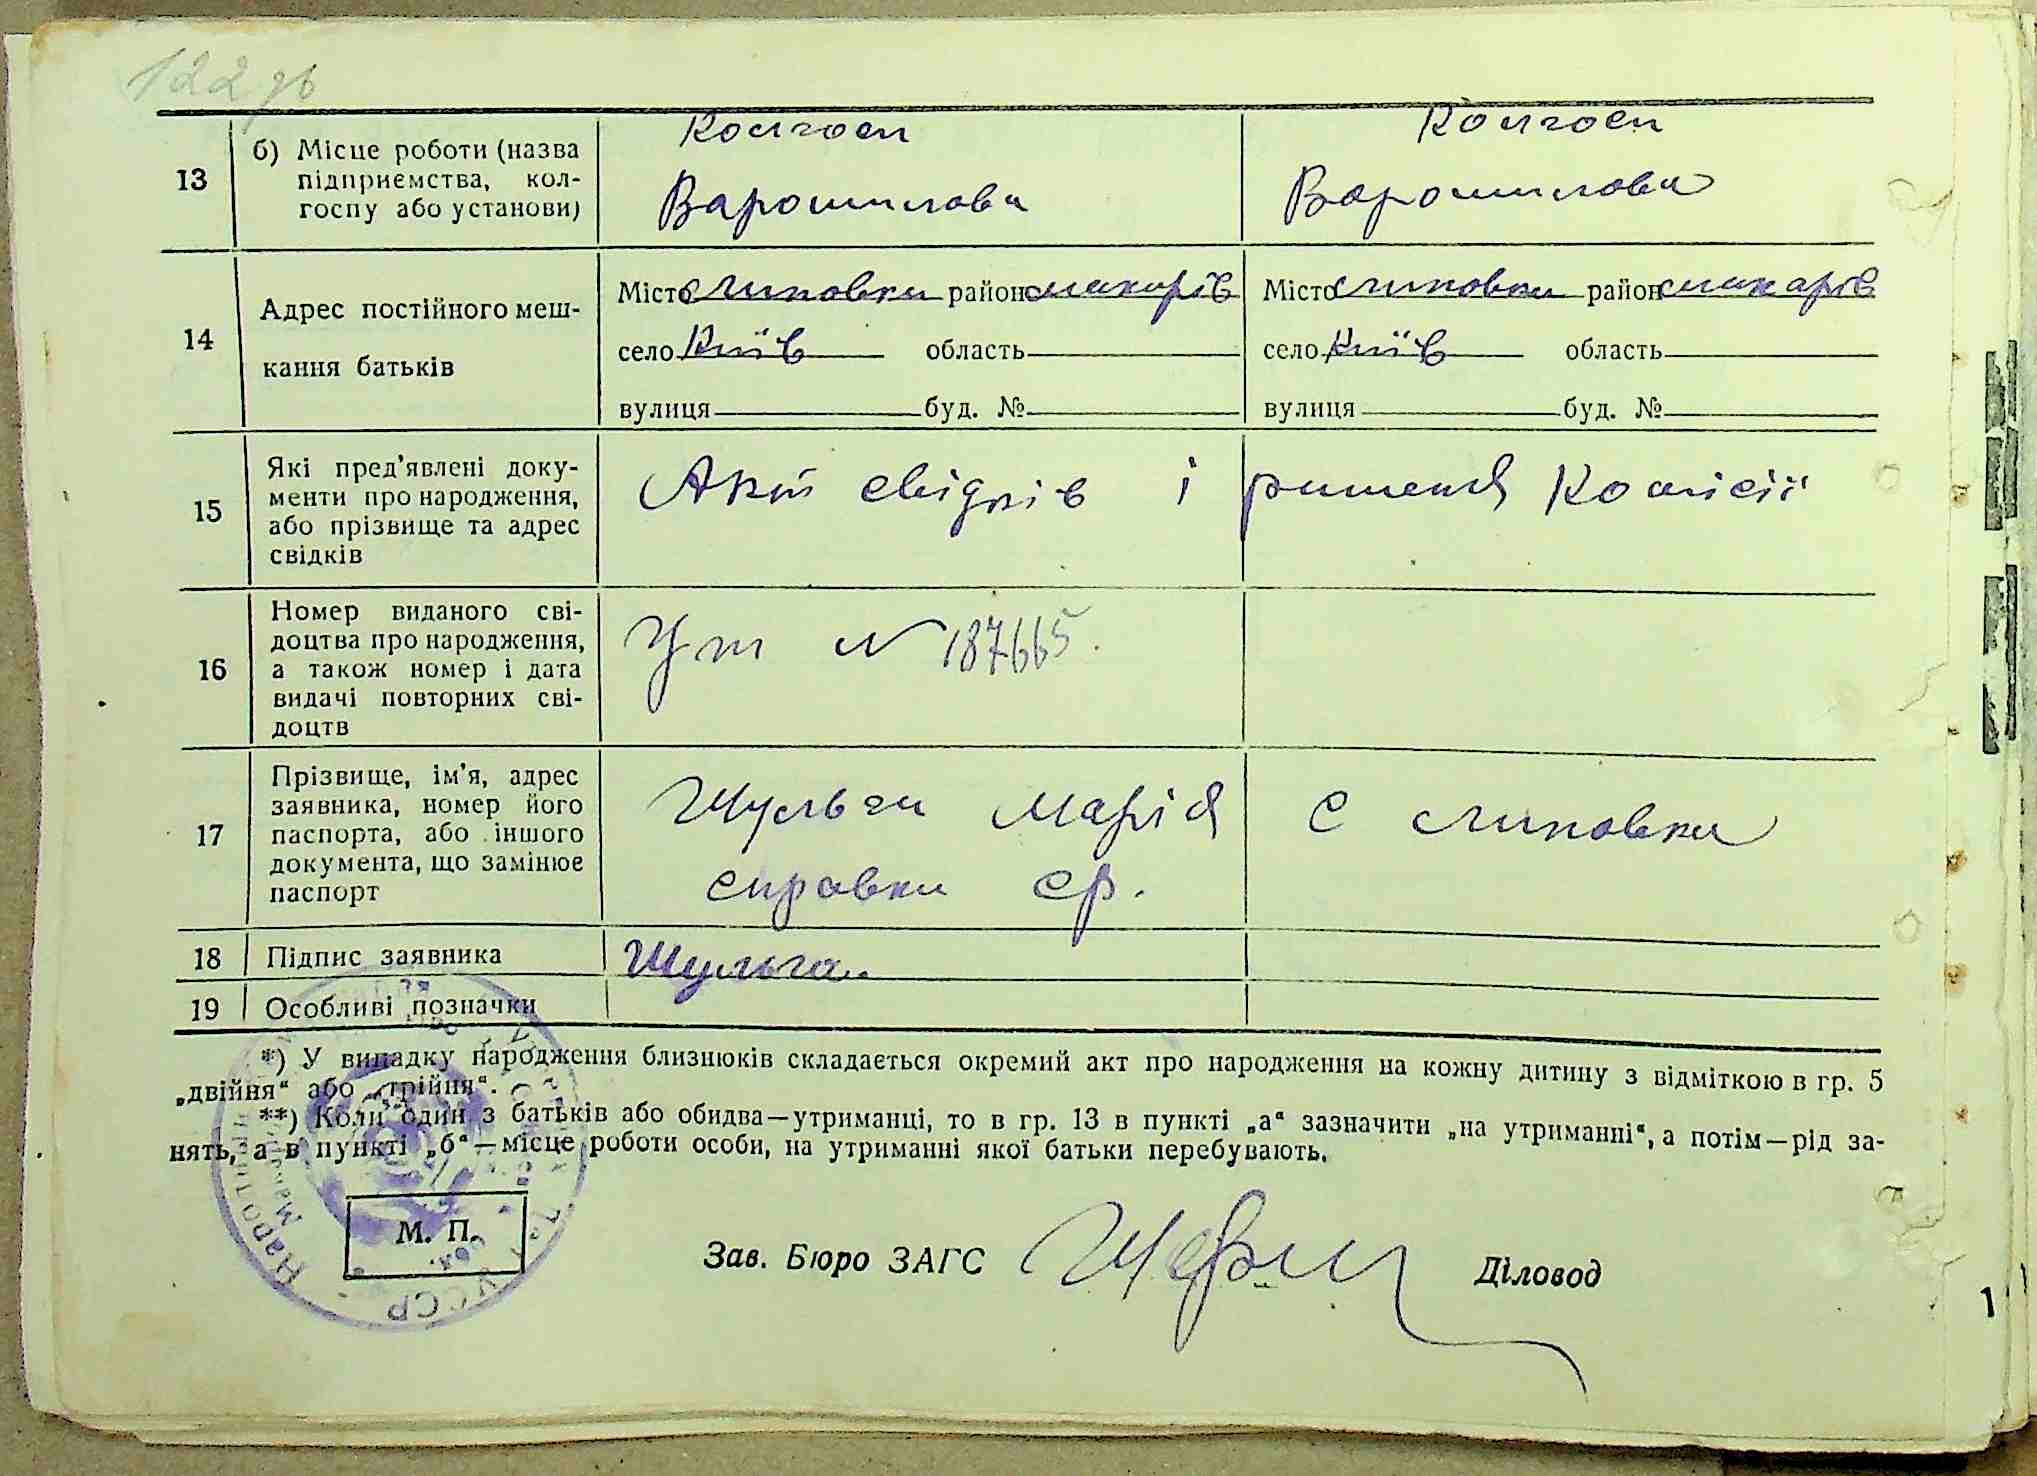 122 зв
13 б) Місце роботи (назва підприємства, колгоспу або установи) Колгосп Варошилова Колгосп Ворошилова
14 Адрес постійного мешкання батьків
Місто Липовка район Макарів Місто Липовка район Макарів
село Київ область село Київ область
вулиця буд. № вулиця буд. №
15 Які пред'явлені документи про народження, або прізвище та адрес свідків Акт свідків і ришення Комісії
16 Номер виданого свідоцтва про народження, а також номер і дата видачі повторних свідоцтв N 187665.
17 Прізвище, ім'я, адрес заявника, номер його паспорта, або іншого документа, що замінює паспорт Шульга Марія с Липовка
справка ср.
18 Підпис заявника Шульга
19 Особливі позначки
*) У випадку народження близнюків складається окремий акт про народження на кожну дитину з відміткою в гр. 5
„двійня“ або „трійня“.
**) Коли один з батьків або обидва—утриманці, то в гр. 13 в пункті „а“ зазначити „на утриманні“, а потім—рід за-
нять, а в пункті „б“—місце роботи особи, на утриманні якої батьки перебувають.
М. П.
Зав. Бюро ЗАГС Діловод
1